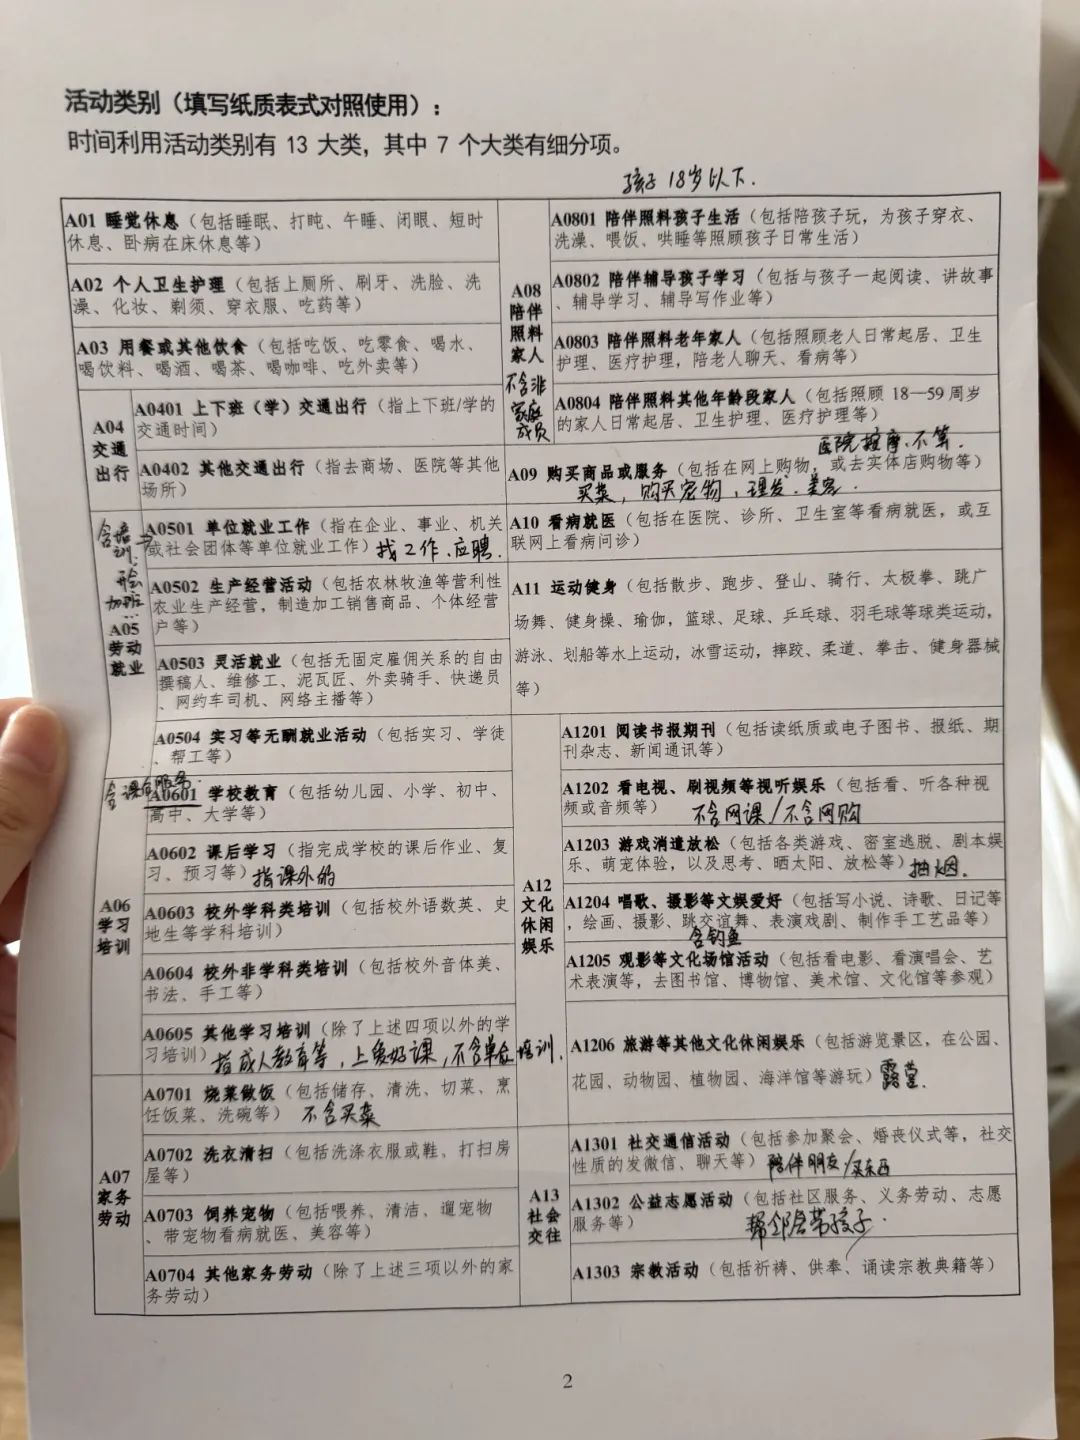 活动类别（填写纸质表式对照使用）：
时间利用活动类别有 13 大类，其中 7 个大类有细分项。
孩子 18岁以下.
A01 睡觉休息（包括睡眠、打盹、午睡、闭眼、短时
休息、卧病在床休息等）
A02 个人卫生护理（包括上厕所、刷牙、洗脸、洗
澡、化妆、剃须、穿衣服、吃药等）
A03 用餐或其他饮食（包括吃饭、吃零食、喝水、
喝饮料、喝酒、喝茶、喝咖啡、吃外卖等）
A04
交通
出行
A0401 上下班（学）交通出行（指上下班/学的
交通时间）
A0402 其他交通出行（指去商场、医院等其他
场所）
含培训.
开会
加班
A05
劳动
就业
A0501 单位就业工作（指在企业、事业、机关
或社会团体等单位就业工作）找工作、应聘.
A0502 生产经营活动（包括农林牧渔等营利性
农业生产经营，制造加工销售商品、个体经营
户等）
A0503 灵活就业（包括无固定雇佣关系的自由
撰稿人、维修工、泥瓦匠、外卖骑手、快递员
、网约车司机、网络主播等）
A0504 实习等无酬就业活动（包括实习、学徒
、帮工等）
含课后服务.
A06
学习
培训
A0601 学校教育（包括幼儿园、小学、初中、
高中、大学等）
A0602 课后学习（指完成学校的课后作业、复
习、预习等）指课外的
A0603 校外学科类培训（包括校外语数英、史
地生等学科培训）
A0604 校外非学科类培训（包括校外音体美、
书法、手工等）
A0605 其他学习培训（除了上述四项以外的学
习培训）指成人教育等，上爱好课，不含单位培训.
A07
家务
劳动
A0701 烧菜做饭（包括储存、清洗、切菜、烹
饪饭菜、洗碗等）不含买菜
A0702 洗衣清扫（包括洗涤衣服或鞋、打扫房
屋等）
A0703 饲养宠物（包括喂养、清洁、遛宠物
、带宠物看病就医、美容等）
A0704 其他家务劳动（除了上述三项以外的家
务劳动）
A08
陪伴
照料
家人
不含非
家庭
成员
A0801 陪伴照料孩子生活（包括陪孩子玩，为孩子穿衣、
洗澡、喂饭、哄睡等照顾孩子日常生活）
A0802 陪伴辅导孩子学习（包括与孩子一起阅读、讲故事
、辅导学习、辅导写作业等）
A0803 陪伴照料老年家人（包括照顾老人日常起居、卫生
护理、医疗护理，陪老人聊天、看病等）
A0804 陪伴照料其他年龄段家人（包括照顾 18—59 周岁
的家人日常起居、卫生护理、医疗护理等）
医院按摩.不算.
A09 购买商品或服务（包括在网上购物，或去实体店购物等）
买菜，购买宠物，理发.美容.
A10 看病就医（包括在医院、诊所、卫生室等看病就医，或互
联网上看病问诊）
A11 运动健身（包括散步、跑步、登山、骑行、太极拳、跳广
场舞、健身操、瑜伽，篮球、足球、乒乓球、羽毛球等球类运动，
游泳、划船等水上运动，冰雪运动，摔跤、柔道、拳击、健身器械
等）
A12
文化
休闲
娱乐
A1201 阅读书报期刊（包括读纸质或电子图书、报纸、期
刊杂志、新闻通讯等）
A1202 看电视、刷视频等视听娱乐（包括看、听各种视
频或音频等）不含网课/不含网购
A1203 游戏消遣放松（包括各类游戏、密室逃脱、剧本娱
乐、萌宠体验，以及思考、晒太阳、放松等）抽烟.
A1204 唱歌、摄影等文娱爱好（包括写小说、诗歌、日记等
，绘画、摄影、跳交谊舞、表演戏剧、制作手工艺品等）
含钓鱼
A1205 观影等文化场馆活动（包括看电影、看演唱会、艺
术表演等，去图书馆、博物馆、美术馆、文化馆等参观）
A1206 旅游等其他文化休闲娱乐（包括游览景区，在公园、
花园、动物园、植物园、海洋馆等游玩）露营.
A13
社会
交往
A1301 社交通信活动（包括参加聚会、婚丧仪式等，社交
性质的发微信、聊天等）陪伴朋友/买东西
A1302 公益志愿活动（包括社区服务、义务劳动、志愿
服务等）帮邻居带孩子.
A1303 宗教活动（包括祈祷、供奉、诵读宗教典籍等）
2